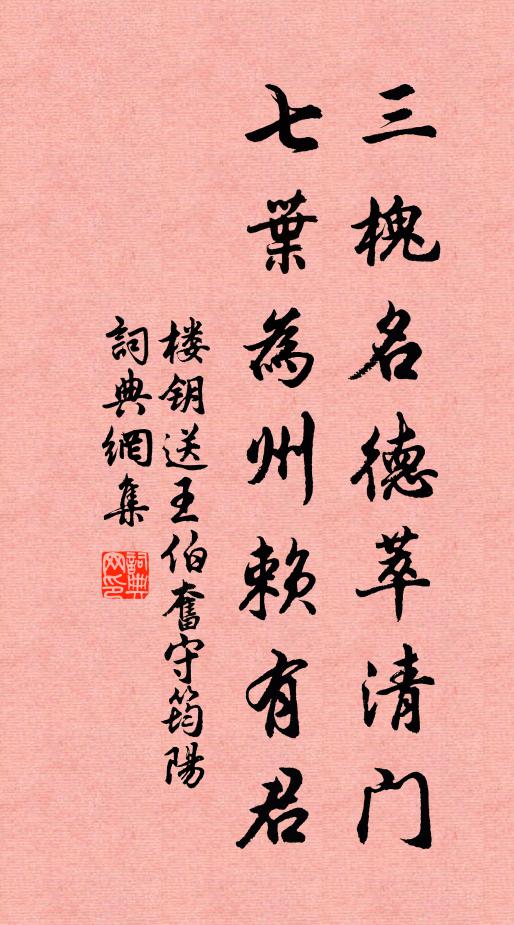 三槐名德萃清门
七葉為州賴有君
楼钥送王伯奮守筠陽
詞典網集
詞典网印